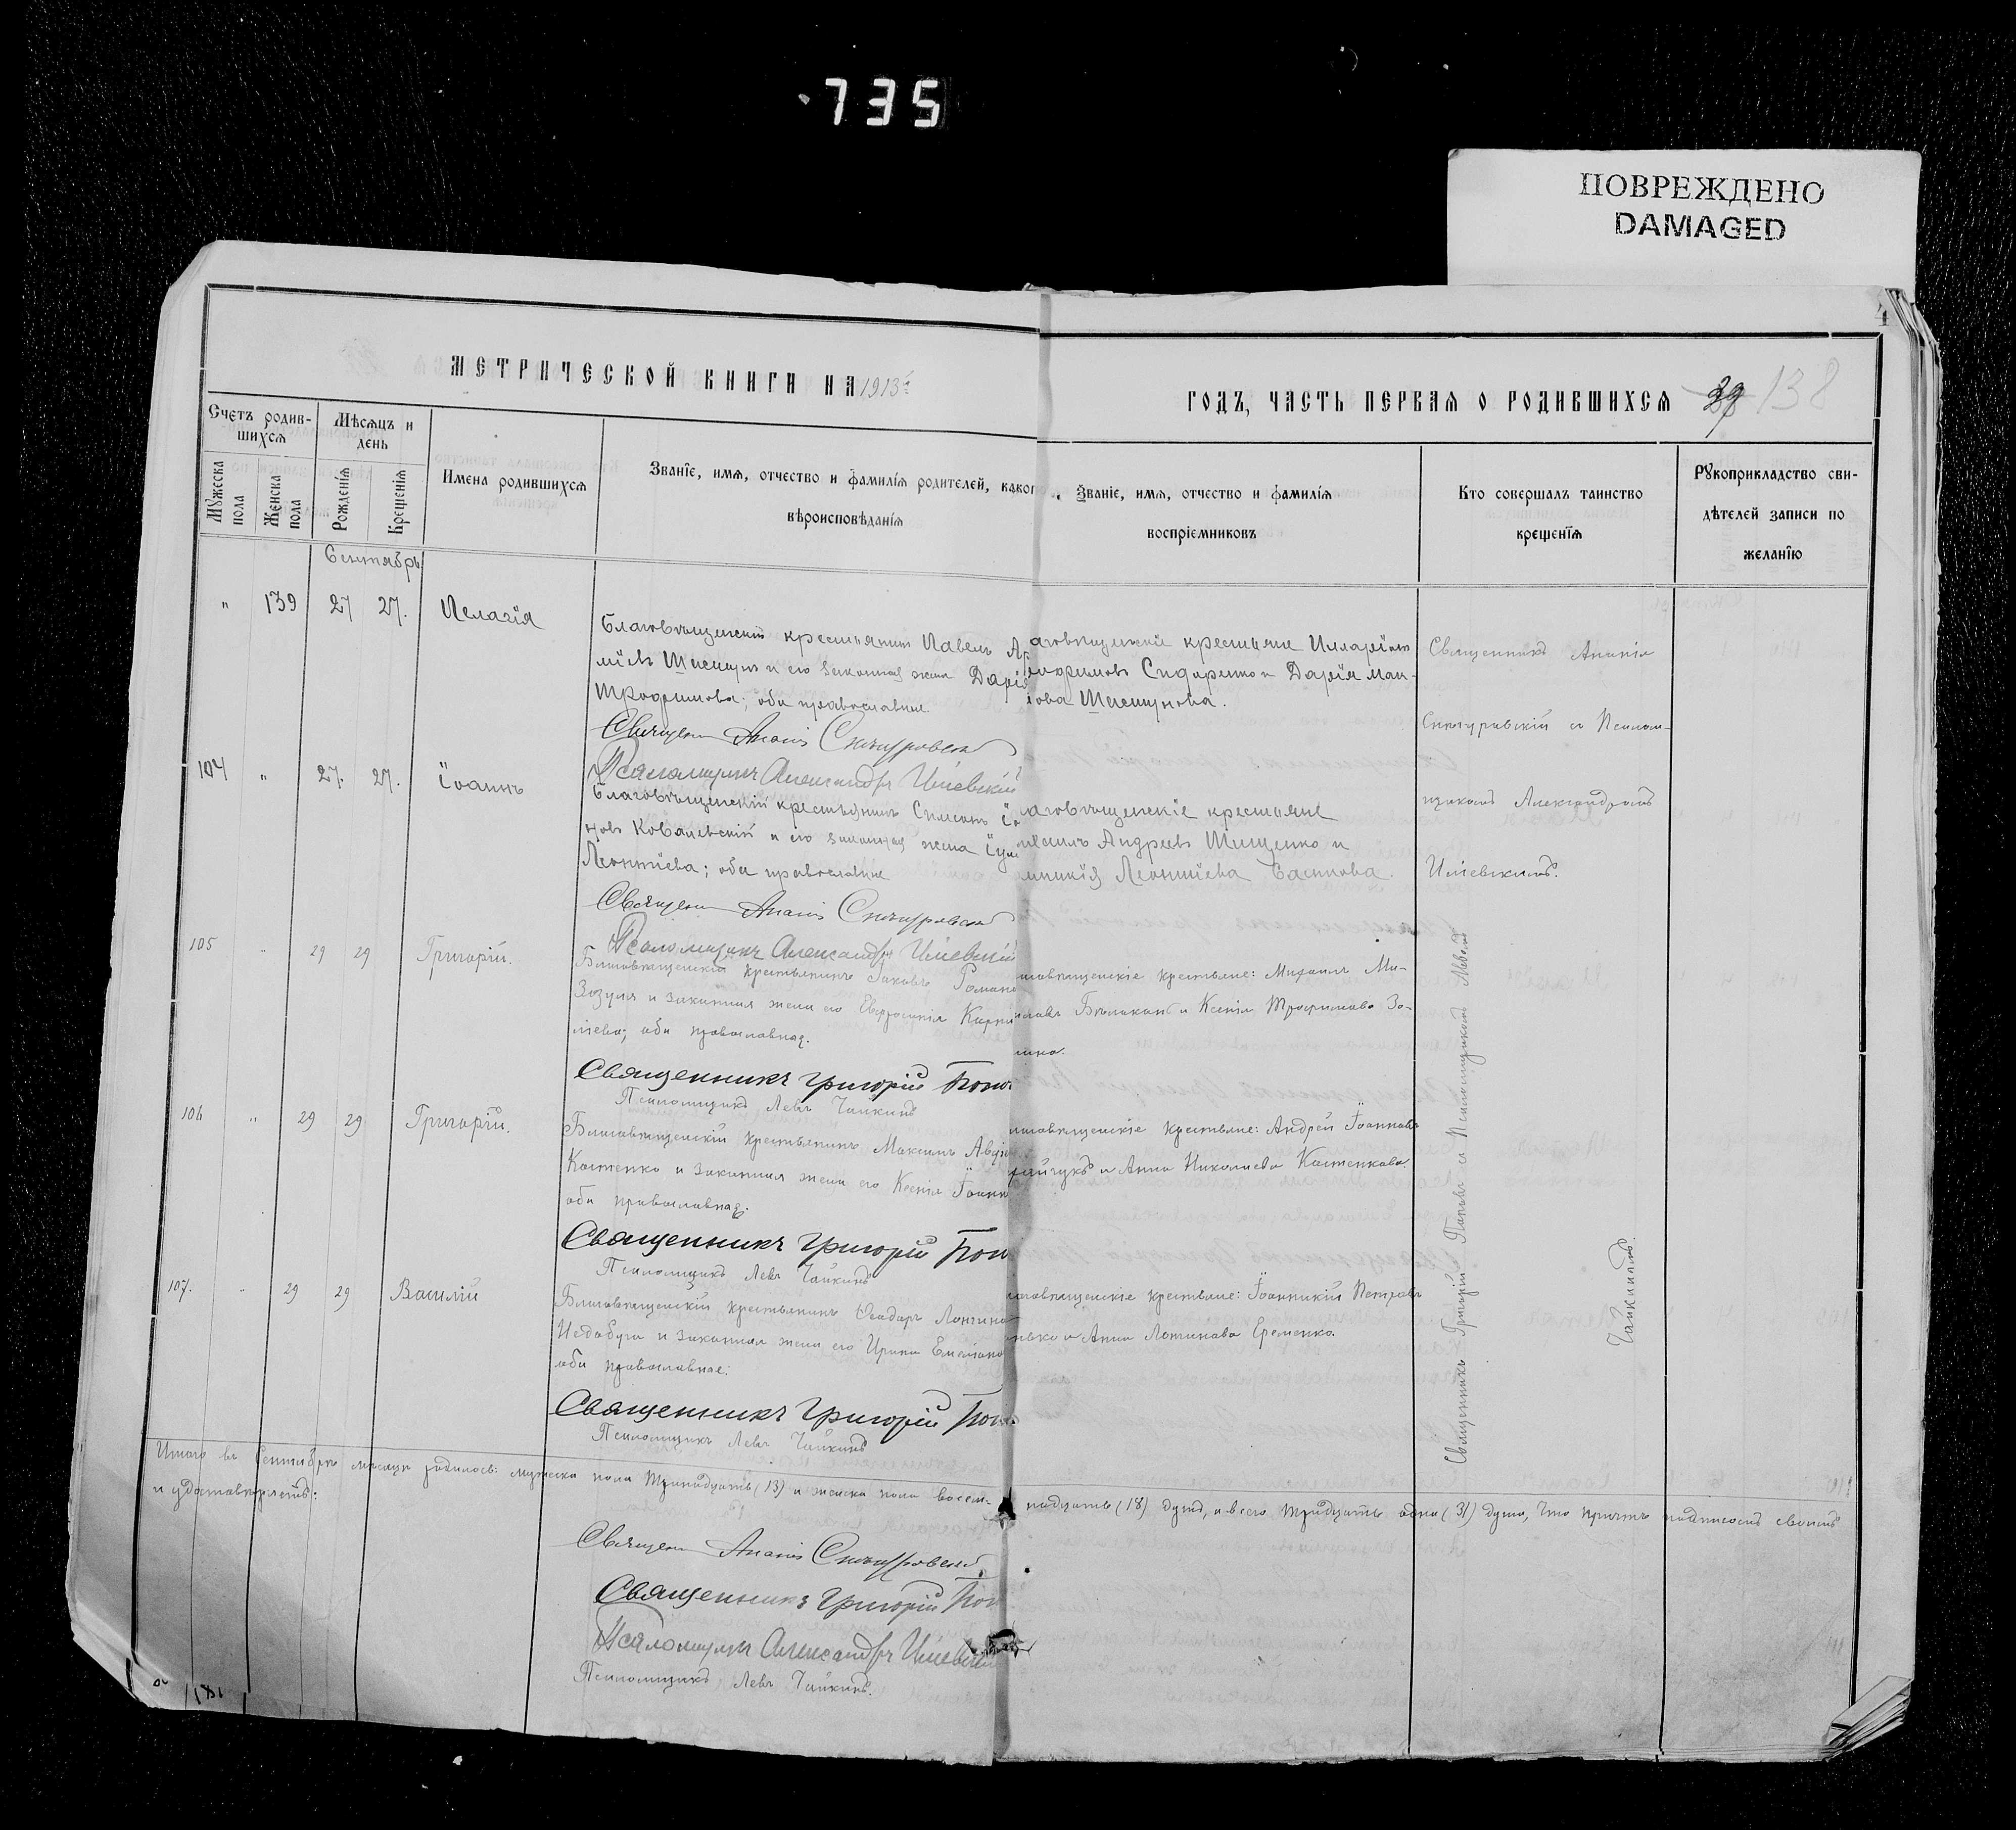 735
ПОВРЕЖДЕНО
DAMAGED
МЕТРИЧЕСКОЙ КНИГИ НА 1913 й
ГОДЪ, ЧАСТЬ ПЕРВАЯ О РОДИВШИХСЯ 138
Счетъ родив-
шихся
Мѣсяцъ и
день
Мужеска пола
Женска пола
Рожденія
Крещенія
Имена родившихся
Званіе, имя, отчество и фамилія родителей, каког
вѣроисповѣданія
Званіе, имя, отчество и фамилія
воспріемниковъ
Кто совершалъ таинство
крещенія
Рукоприкладство сви-
дѣтелей записи по
желанію
Сентябрь
" 139 27 27. Пелагія
Благовѣщенскій крестьянинъ Павелъ
и его законная жена Дарія
Трофимова; оба православные.
Священ Ананія Снѣгуровскій
Псаломщикъ Александръ Ишевскій
аговѣщенскіе крестьяне Илларіонъ
Сидоренко и Дарія
Священникъ Ананія
Снѣгуровскій съ Псалом-
щикомъ Александромъ
Ишевскимъ.
104 " 27. 27. Іоаннъ
Благовѣщенскій крестьянинъ Симеонъ
новъ Ковалевскій и его законная жена
Леонтіева; оба православные
Священ Ананія Снѣгуровскій
Псаломщикъ Александръ Ишевскій
аговѣщенскіе крестьяне
Андреевъ Тищенко и
Леонтіева
105 " 29 29 Григорій.
Благовѣщенскій крестьянинъ Іаковъ Романо
Зозуля и законная жена его Евфросинія Карпи
ліева; оба православная.
Священникъ Григорій Попо
Псаломщикъ Левъ Чайкинъ
аговѣщенскіе крестьяне: Михаилъ Ми-
и Ксенія Трофимова Зо-
106 " 29 29 Григорій.
Благовѣщенскій крестьянинъ Максимъ
Костенко и законная жена его Ксенія Іоанн
оба православная.
Священникъ Григорій Поп
Псаломщикъ Левъ Чайкинъ
говѣщенскіе крестьяне: Андрей Іоанновъ
и Анна Николаева Костенкова.
107. " 29 29 Василій
Благовѣщенскій крестьянинъ Ѳеодоръ Логгино
Недобуга и законная жена его Ирина Емеліано
оба православные.
Священникъ Григорій Поп
Псаломщикъ Левъ Чайкинъ
аговѣщенскіе крестьяне: Іоанникій Петровъ
и Анна Логинова Еременко.
Священникъ Григорій Поповъ съ Псаломщикомъ Львомъ
Чайкинымъ.
Итого въ Сентябрѣ мѣсяцѣ родилось: мужеска пола тринадцать (13) и женска пола восем-
надцать (18) душъ, а всего тридцать одна (31) душа, что причтъ подписомъ своимъ
и удостовѣряетъ:
Священ Ананія Снѣгуровскій
Священникъ Григорій Поп
Псаломщикъ Александръ Ишевскій
Псаломщикъ Левъ Чайкинъ.